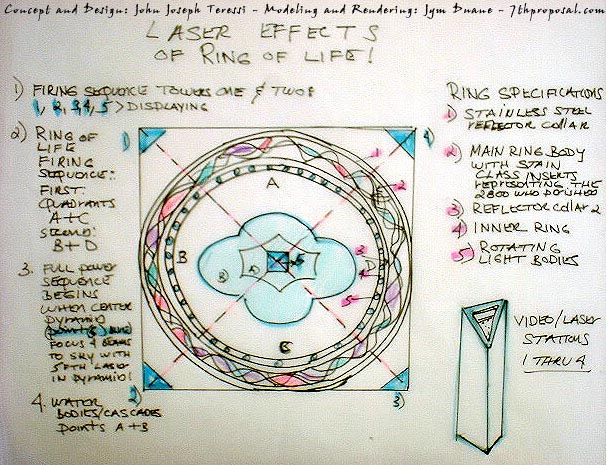 Concept and Design: John Joseph Teressi - Modeling and Rendering: Jym Duane - 7thproposal.com
LASER EFFECTS
OF RING OF LIFE!
1) FIRING SEQUENCE TOWERS ONE & TWO &
1, 2, 3, 4, 5 > DISPLAYING
2) RING OF
LIFE
FIRING
SEQUENCE:
FIRST:
QUADRANTS
A+C
SECOND:
B+D
3. FULL POWER
SEQUENCE
BEGINS
WHEN CENTER
PYRAMID
(POINT 5)
FOCUS 4 BEAMS
TO SKY WITH
5TH LASER
IN PYRAMID!
4. WATER
BODIES/CASCADES
POINTS A+B
1)
4)
2)
3)
A
B
C
D
1
2
3
4
5
RING SPECIFICATIONS
1) STAINLESS STEEL
REFLECTOR COLLAR
2) MAIN RING BODY
WITH STAIN
GLASS INSERTS
REPRESENTING THE
2800 WHO PERISHED
3) REFLECTOR COLLAR 2
4) INNER RING
5) ROTATING
LIGHT BODIES
VIDEO/LASER
STATIONS
1 THRU 4